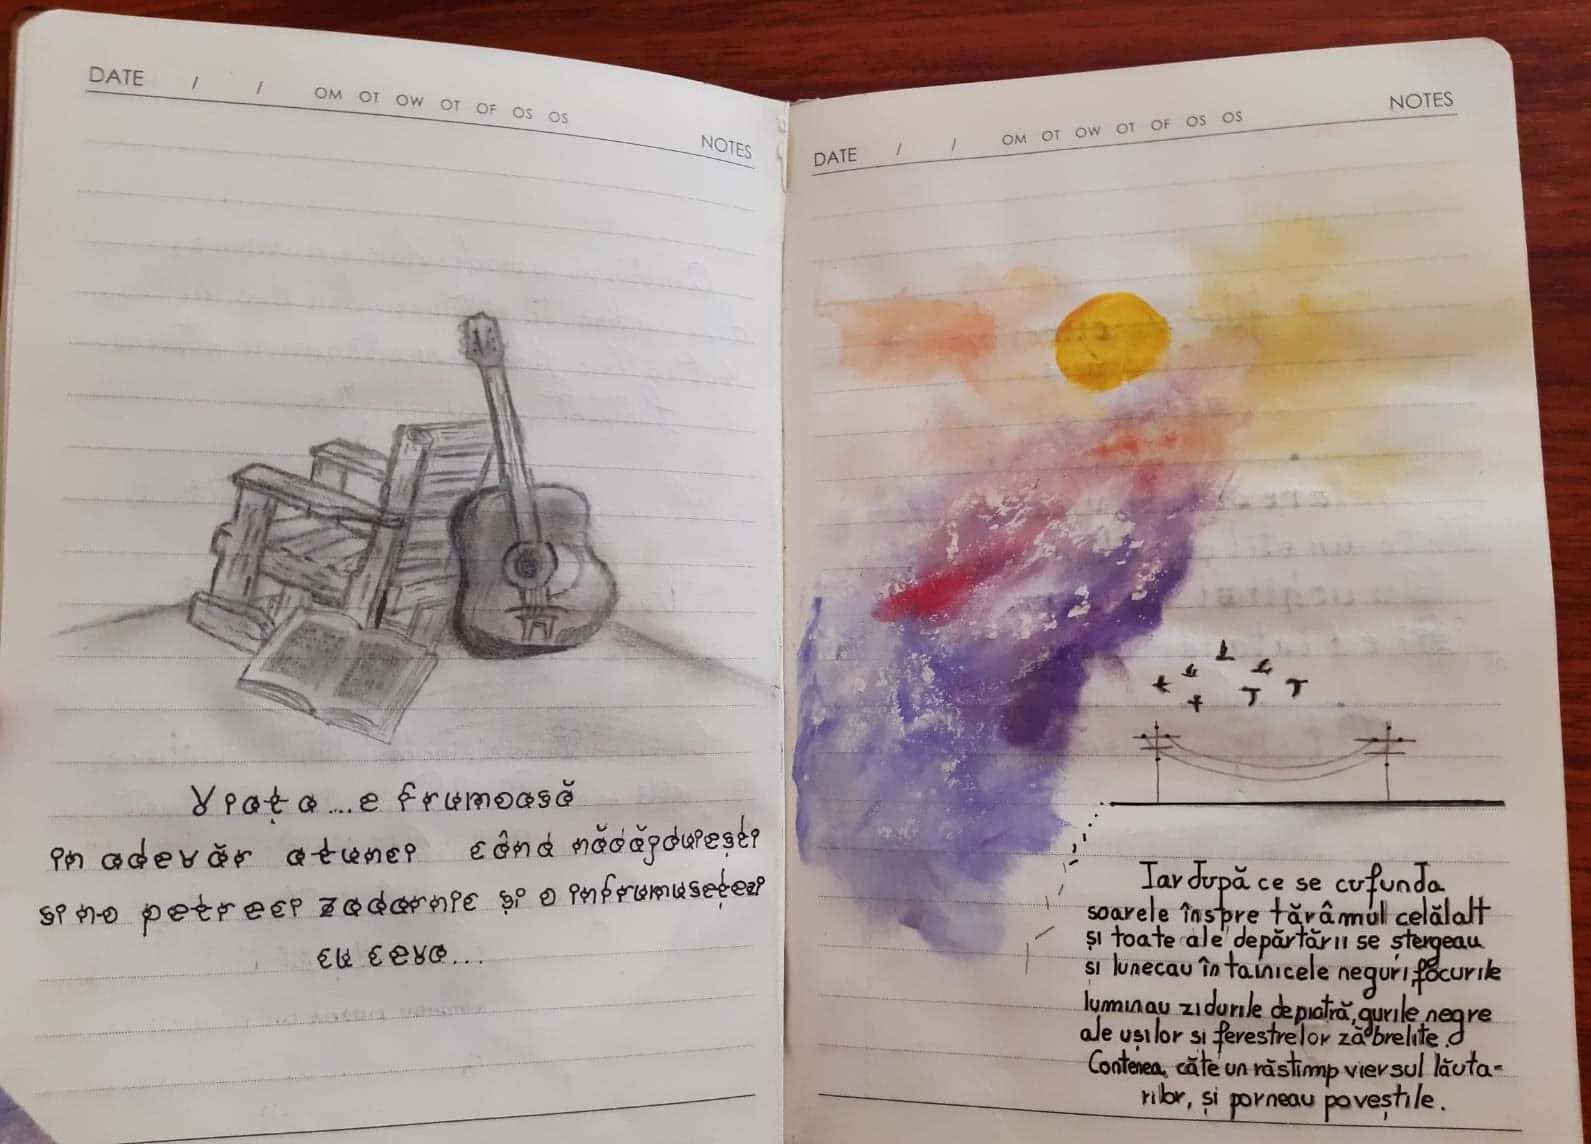 DATE / / OM OT OW OT OF OS OS
NOTES
Viața...e frumoasă
in adevăr atunci când nădăjduiești
si n-o petreci zadarnic și o infrumusețezi
cu ceva...
NOTES
DATE / / OM OT OW OT OF OS OS
Iar după ce se cufunda
soarele înspre tărâmul celălalt
și toate ale depărtării se ștergeau
si lunecau în tainicele neguri, focurile
luminau zidurile de piatră, gurile negre
ale ușilor si ferestrelor zăbrelite.
Contenea, câte un răstimp viersul lăuta-
rilor, și porneau poveștile.